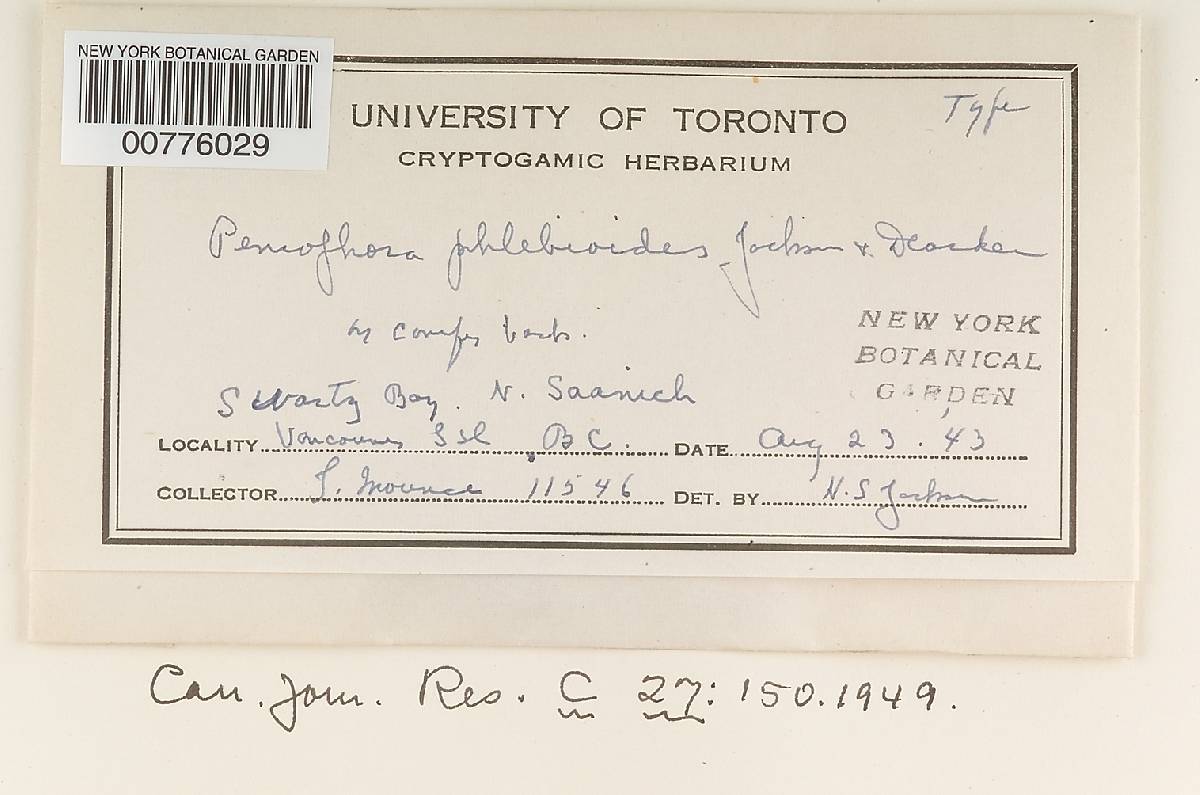 NEW YORK BOTANICAL GARDEN
00776029
Type
UNIVERSITY OF TORONTO
CRYPTOGAMIC HERBARIUM
Peniophora phlebioides Jackson & Dearden
on conifer bark.
NEW YORK
BOTANICAL
GARDEN
Swartz Bay. N. Saanich
LOCALITY Vancouver Isl B C. DATE Aug 23. 43
COLLECTOR I. Mounce 11546 DET. BY H. S Jackson
Can. Jour. Res. C 27: 150. 1949.